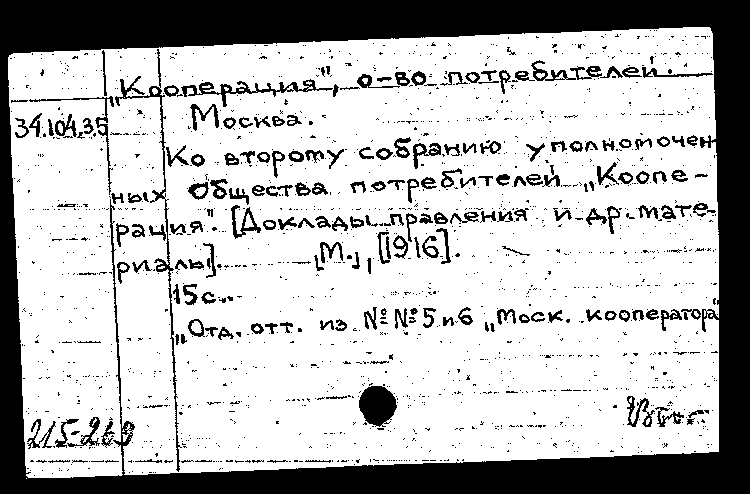 „Кооперация", о-во потребителей.
34.104.35 Москва.
Ко второму собранию уполномочен
ных Общества потребителей „Коопе-
рация". [Доклады правления и др. мате-
риалы]. [М.], [1916].
15 с.
„Отд. отт. из №№ 5 и 6 „Моск. кооператора"
215-269